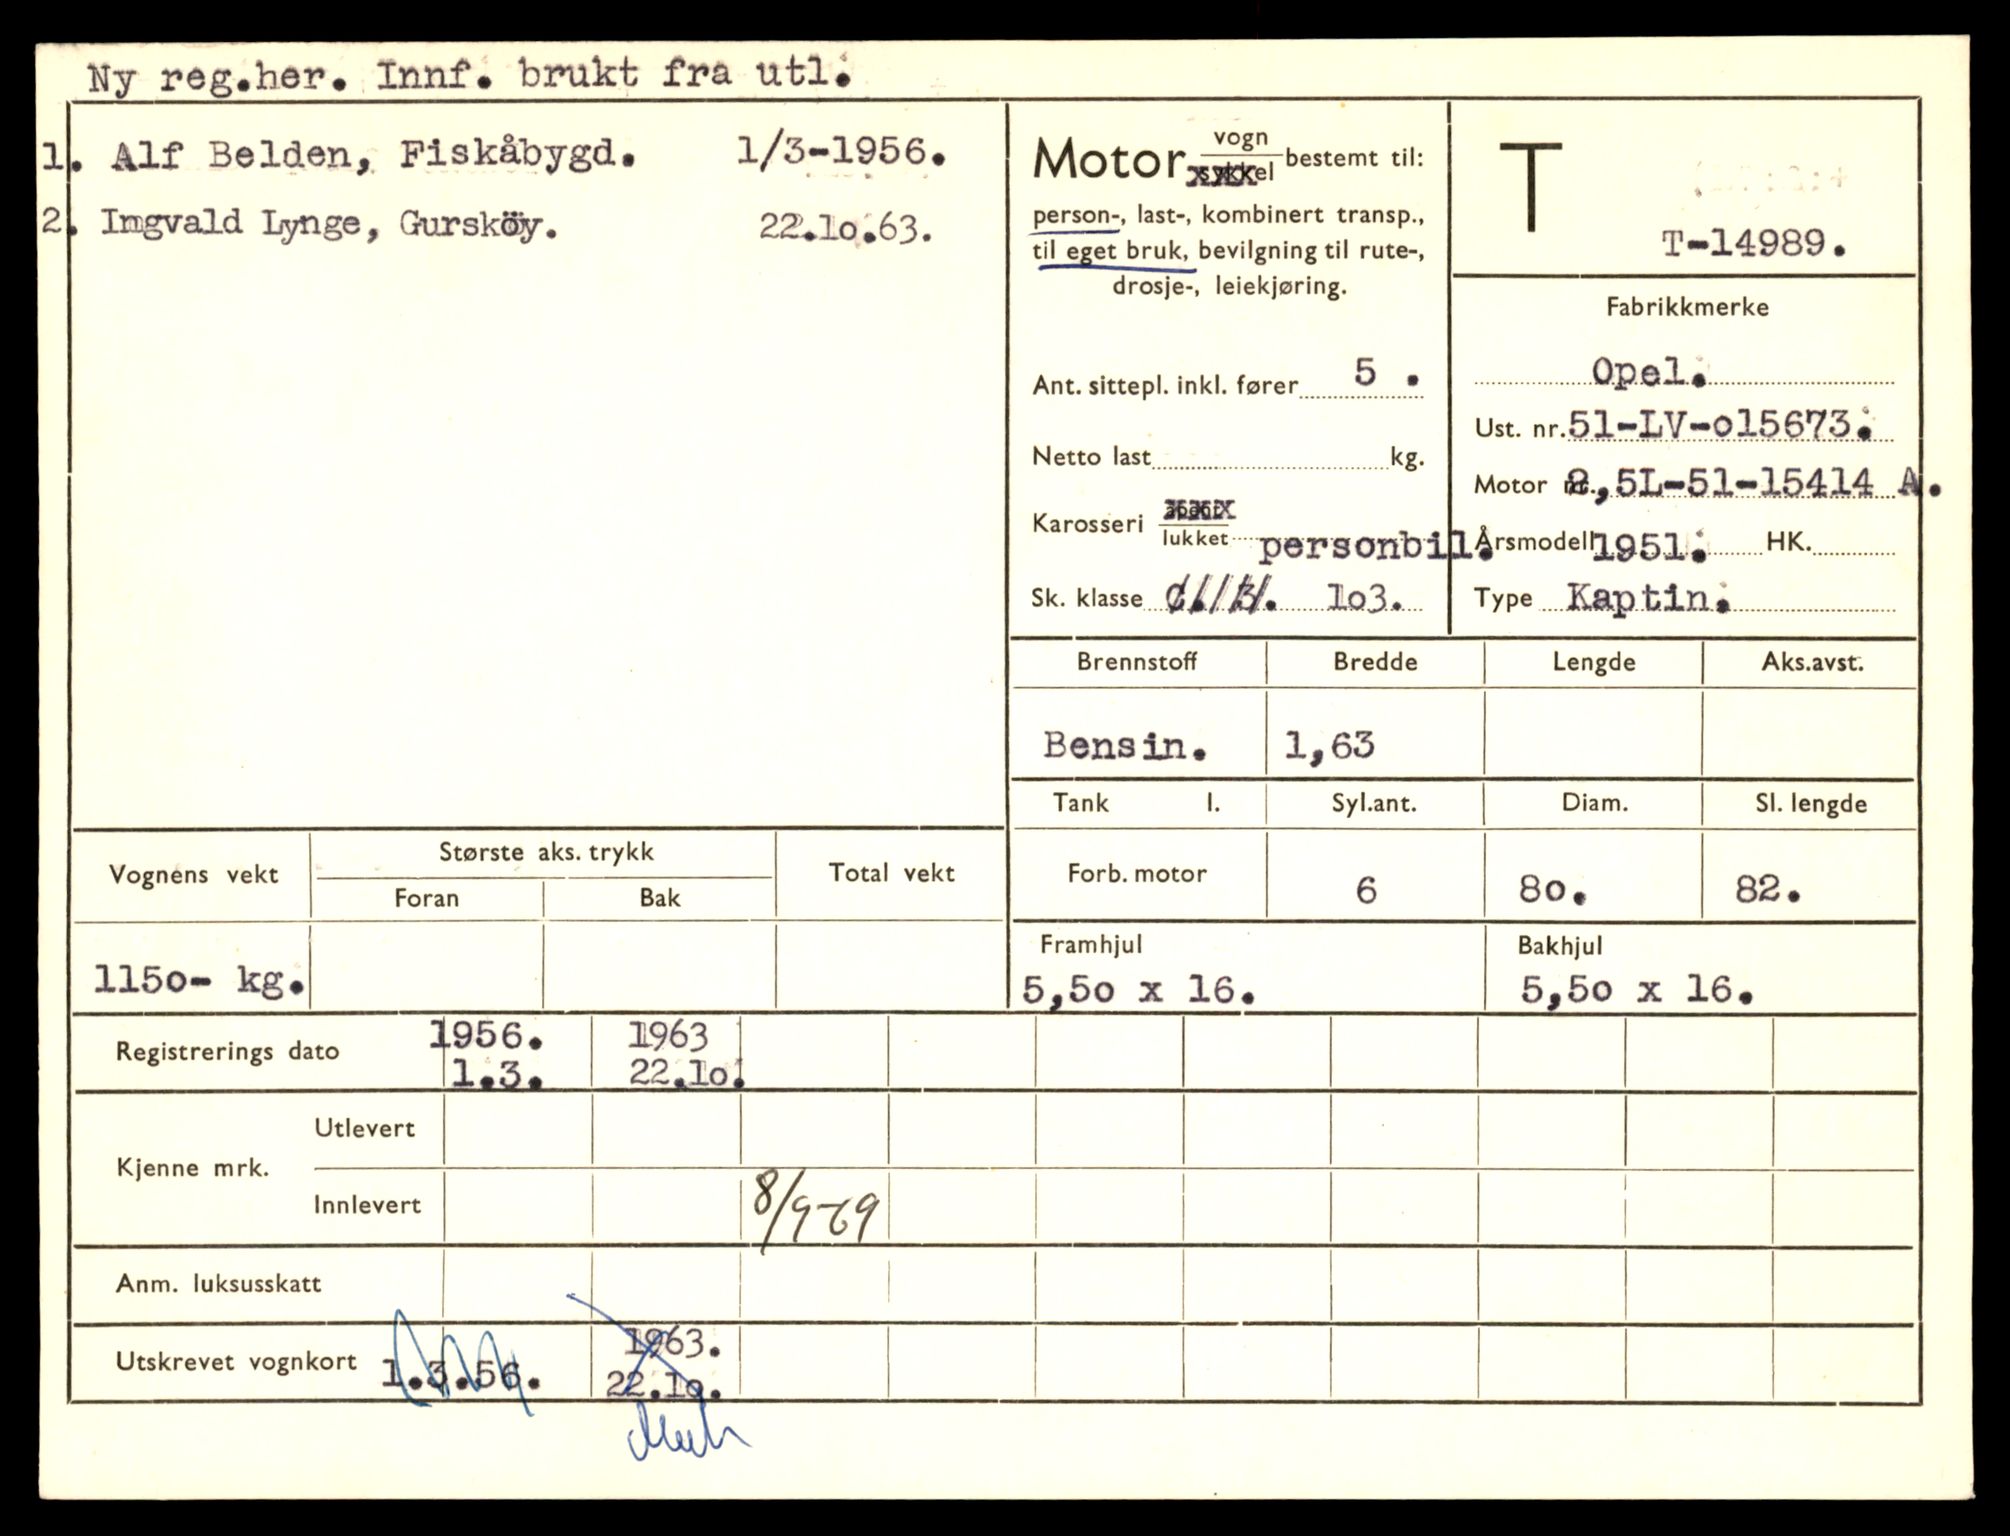 Ny reg.her. Innf. brukt fra utl.
1. Alf Belden, Fiskåbygd. 1/3-1956.
2. Imgvald Lynge, Gursköy. 22.1o.63.
Motor vogn bestemt til:
sykkel
person-, last-, kombinert transp.,
til eget bruk, bevilgning til rute-,
drosje-, leiekjøring.
Ant. sittepl. inkl. fører 5 .
Netto last kg.
Karosseri åpent
lukket personbil.
Sk. klasse 1o3.
T
T-14989.
Fabrikkmerke
Opel.
Ust. nr. 51-LV-o15673.
Motor nr. 2,5L-51-15414 A.
Årsmodell 1951. HK.
Type Kaptin.
Brennstoff Bredde Lengde Aks.avst.
Bensin. 1,63
Tank l. Syl.ant. Diam. Sl. lengde
Forb. motor 6 8o. 82.
Framhjul Bakhjul
5,5o x 16. 5,5o x 16.
Vognens vekt Største aks. trykk Total vekt
Foran Bak
115o- kg.
Registrerings dato 1956. 1963
1.3. 22.1o.
Kjenne mrk. Utlevert
Innlevert 8/9-69
Anm. luksusskatt
Utskrevet vognkort 1.3.56. 1963.
22.1o.